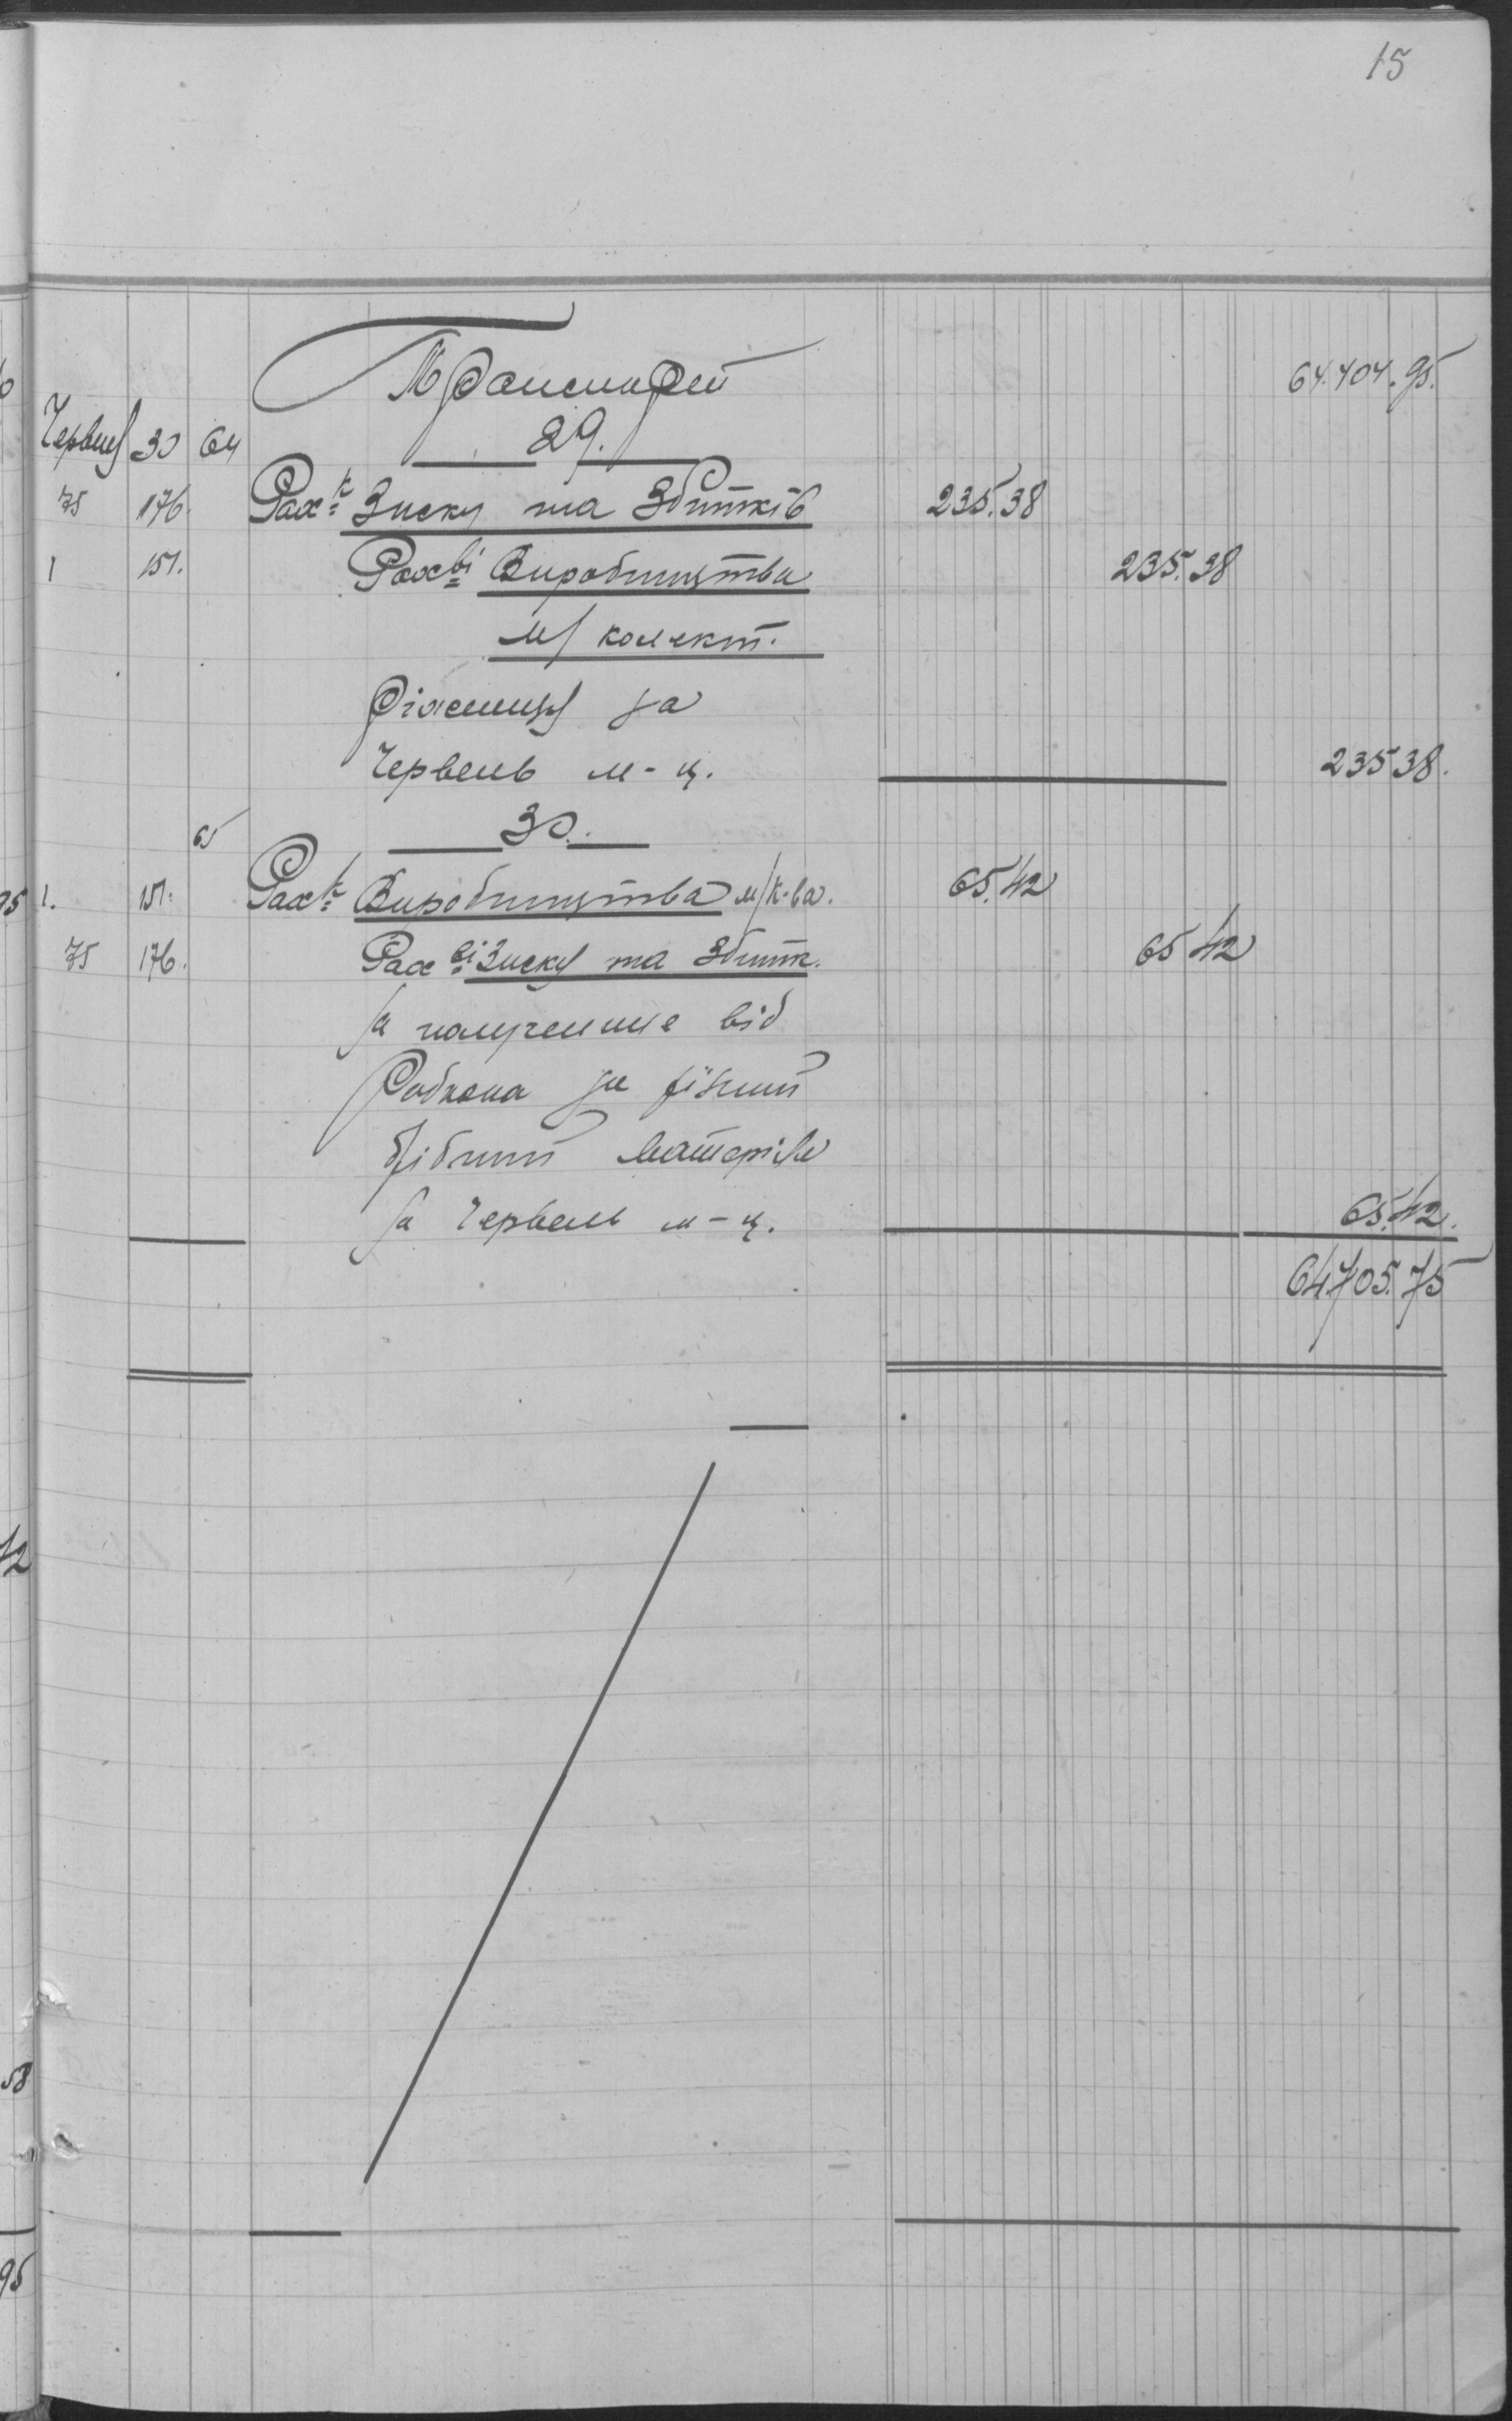 15
Транспорт 64.404.95.
Червень 30 64 29.
75 176. Рах-к Зиску та Збитків 235.38
1 151. Рах-ві Виробництва 235.38
м/ колект.
Ріжниця за
Червень м-ц. 235 38.
65 30.
1. 151. Рах-к Виробництва м/к-ва. 65.42
75 176. Рах-ві Зиску та Збитк. 65 42
за полученше від
Робкопа за ріжний
дрібний матеріял
за Червень м-ц. 65.42.
64705.75